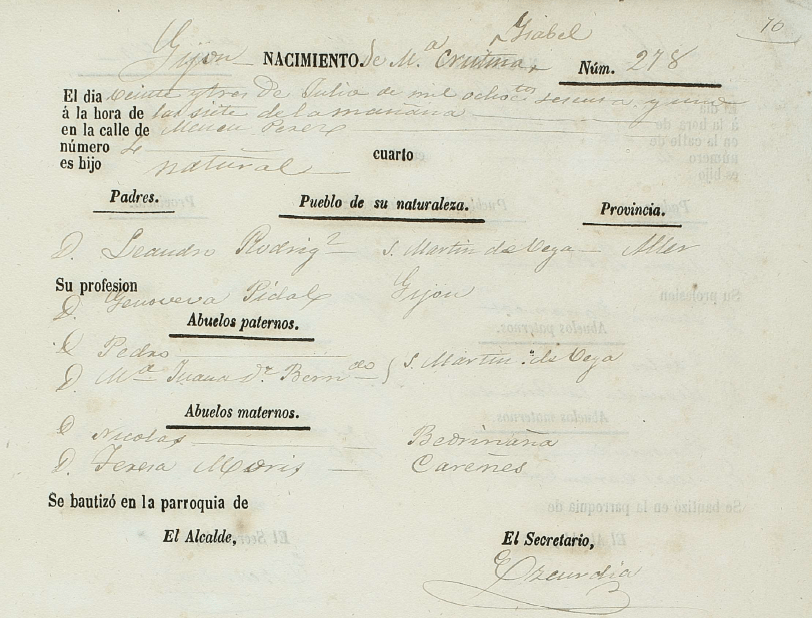 Isabel 70
Gijon NACIMIENTO. de M.ª Cristina, Núm. 278
El dia veinte y tres de Julio de mil ochoc.tos sesenta y uno
á la hora de las siete de la mañana
en la calle de Merced
número
es hijo natural cuarto
Padres. Pueblo de su naturaleza. Provincia.
D. Leandro Rodrig.z S. Martin de Vega Aller
Su profesion
D. Genoveva Pidal Gijon
Abuelos paternos.
D. Pedro
D. M.ª Juana Dz. Bernardo } S. Martin de Vega
Abuelos maternos.
D. Nicolas Bedriñana
D. Teresa Moris Careñes
Se bautizó en la parroquia de
El Alcalde, El Secretario,
Ezcurdia